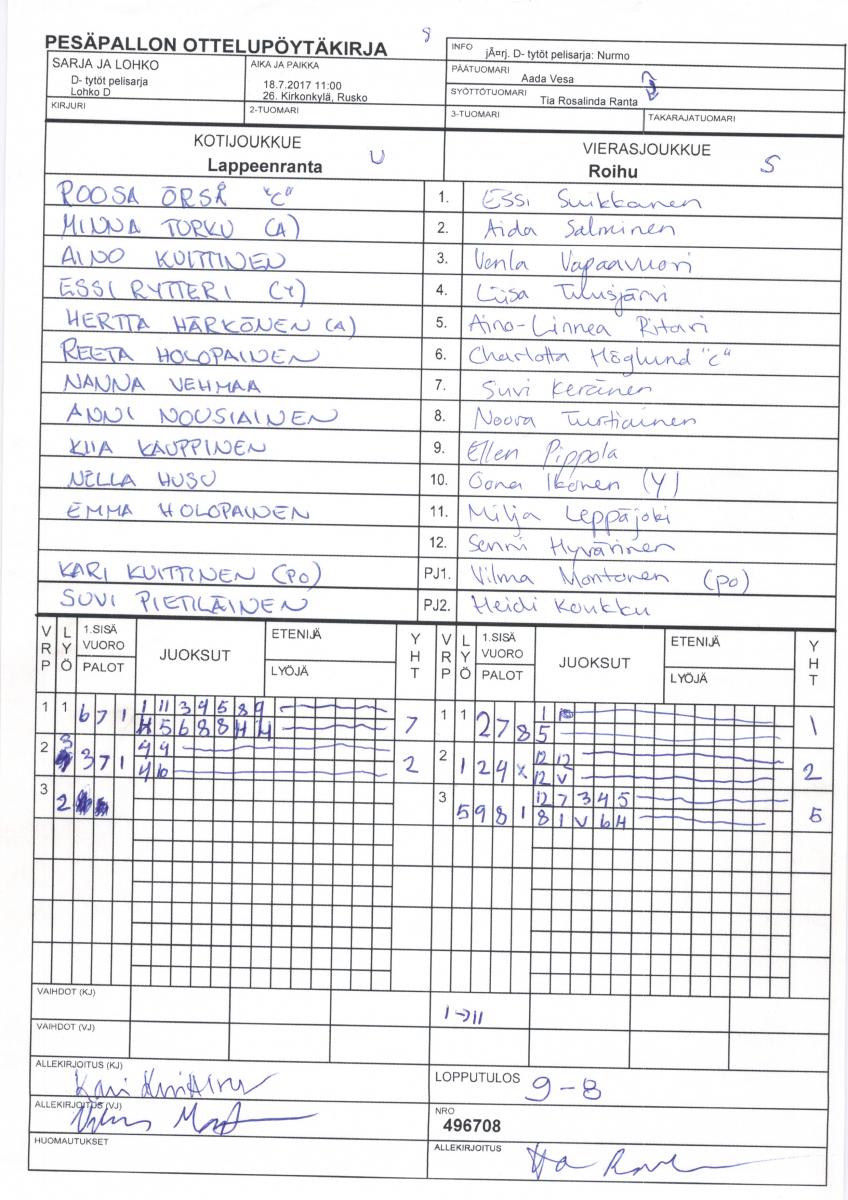 8
PESÄPALLON OTTELUPÖYTÄKIRJA
INFO jÃ¤rj. D- tytöt pelisarja: Nurmo
SARJA JA LOHKO
D- tytöt pelisarja
Lohko D
AIKA JA PAIKKA
18.7.2017 11:00
26. Kirkonkylä, Rusko
PÄÄTUOMARI Aada Vesa
SYÖTTÖTUOMARI Tia Rosalinda Ranta
KIRJURI 2-TUOMARI 3-TUOMARI TAKARAJATUOMARI
KOTIJOUKKUE VIERASJOUKKUE
Lappeenranta U Roihu S
ROOSA ÖRSÅ "C" 1. Essi Suikkanen
MINNA TORKU (A) 2. Aida Salminen
AINO KUITTINEN 3. Venla Vapaavuori
ESSI RYTTERI (Y) 4. Liisa Tuusjärvi
HERTTA HÄRKÖNEN (A) 5. Aino-Linnea Ritari
REETA HOLOPAINEN 6. Charlotta Höglund "c"
NANNA VEHMAA 7. Suvi Keränen
ANNI NOUSIAINEN 8. Noora Turtiainen
KIIA KAUPPINEN 9. Ellen Pippola
NELLA HUSU 10. Oona Ikonen (Y)
EMMA HOLOPAINEN 11. Milja Leppäjoki
12. Senni Hyvärinen
KARI KUITTINEN (PO) PJ1. Vilma Montonen (po)
SUVI PIETILÄINEN PJ2. Heidi Koukku
VRP LYÖ 1.SISÄ VUORO PALOT JUOKSUT ETENIJÄ LYÖJÄ YHT VRP LYÖ 1.SISÄ VUORO PALOT JUOKSUT ETENIJÄ LYÖJÄ YHT
1 1 6 7 1 1 11 3 4 5 8 9 7 1 1 2 7 8 1 1
5 6 8 8 H H 5
2 3 3 7 1 4 4 2 2 1 2 4 x 12 12 2
4 6 12 V
3 2 3 5 9 8 1 12 7 3 4 5 5
8 1 V 6 H
VAIHDOT (KJ)
1→11
VAIHDOT (VJ)
ALLEKIRJOITUS (KJ) Kari Kuittinen
LOPPUTULOS 9-8
ALLEKIRJOITUS (VJ)
NRO
496708
HUOMAUTUKSET ALLEKIRJOITUS